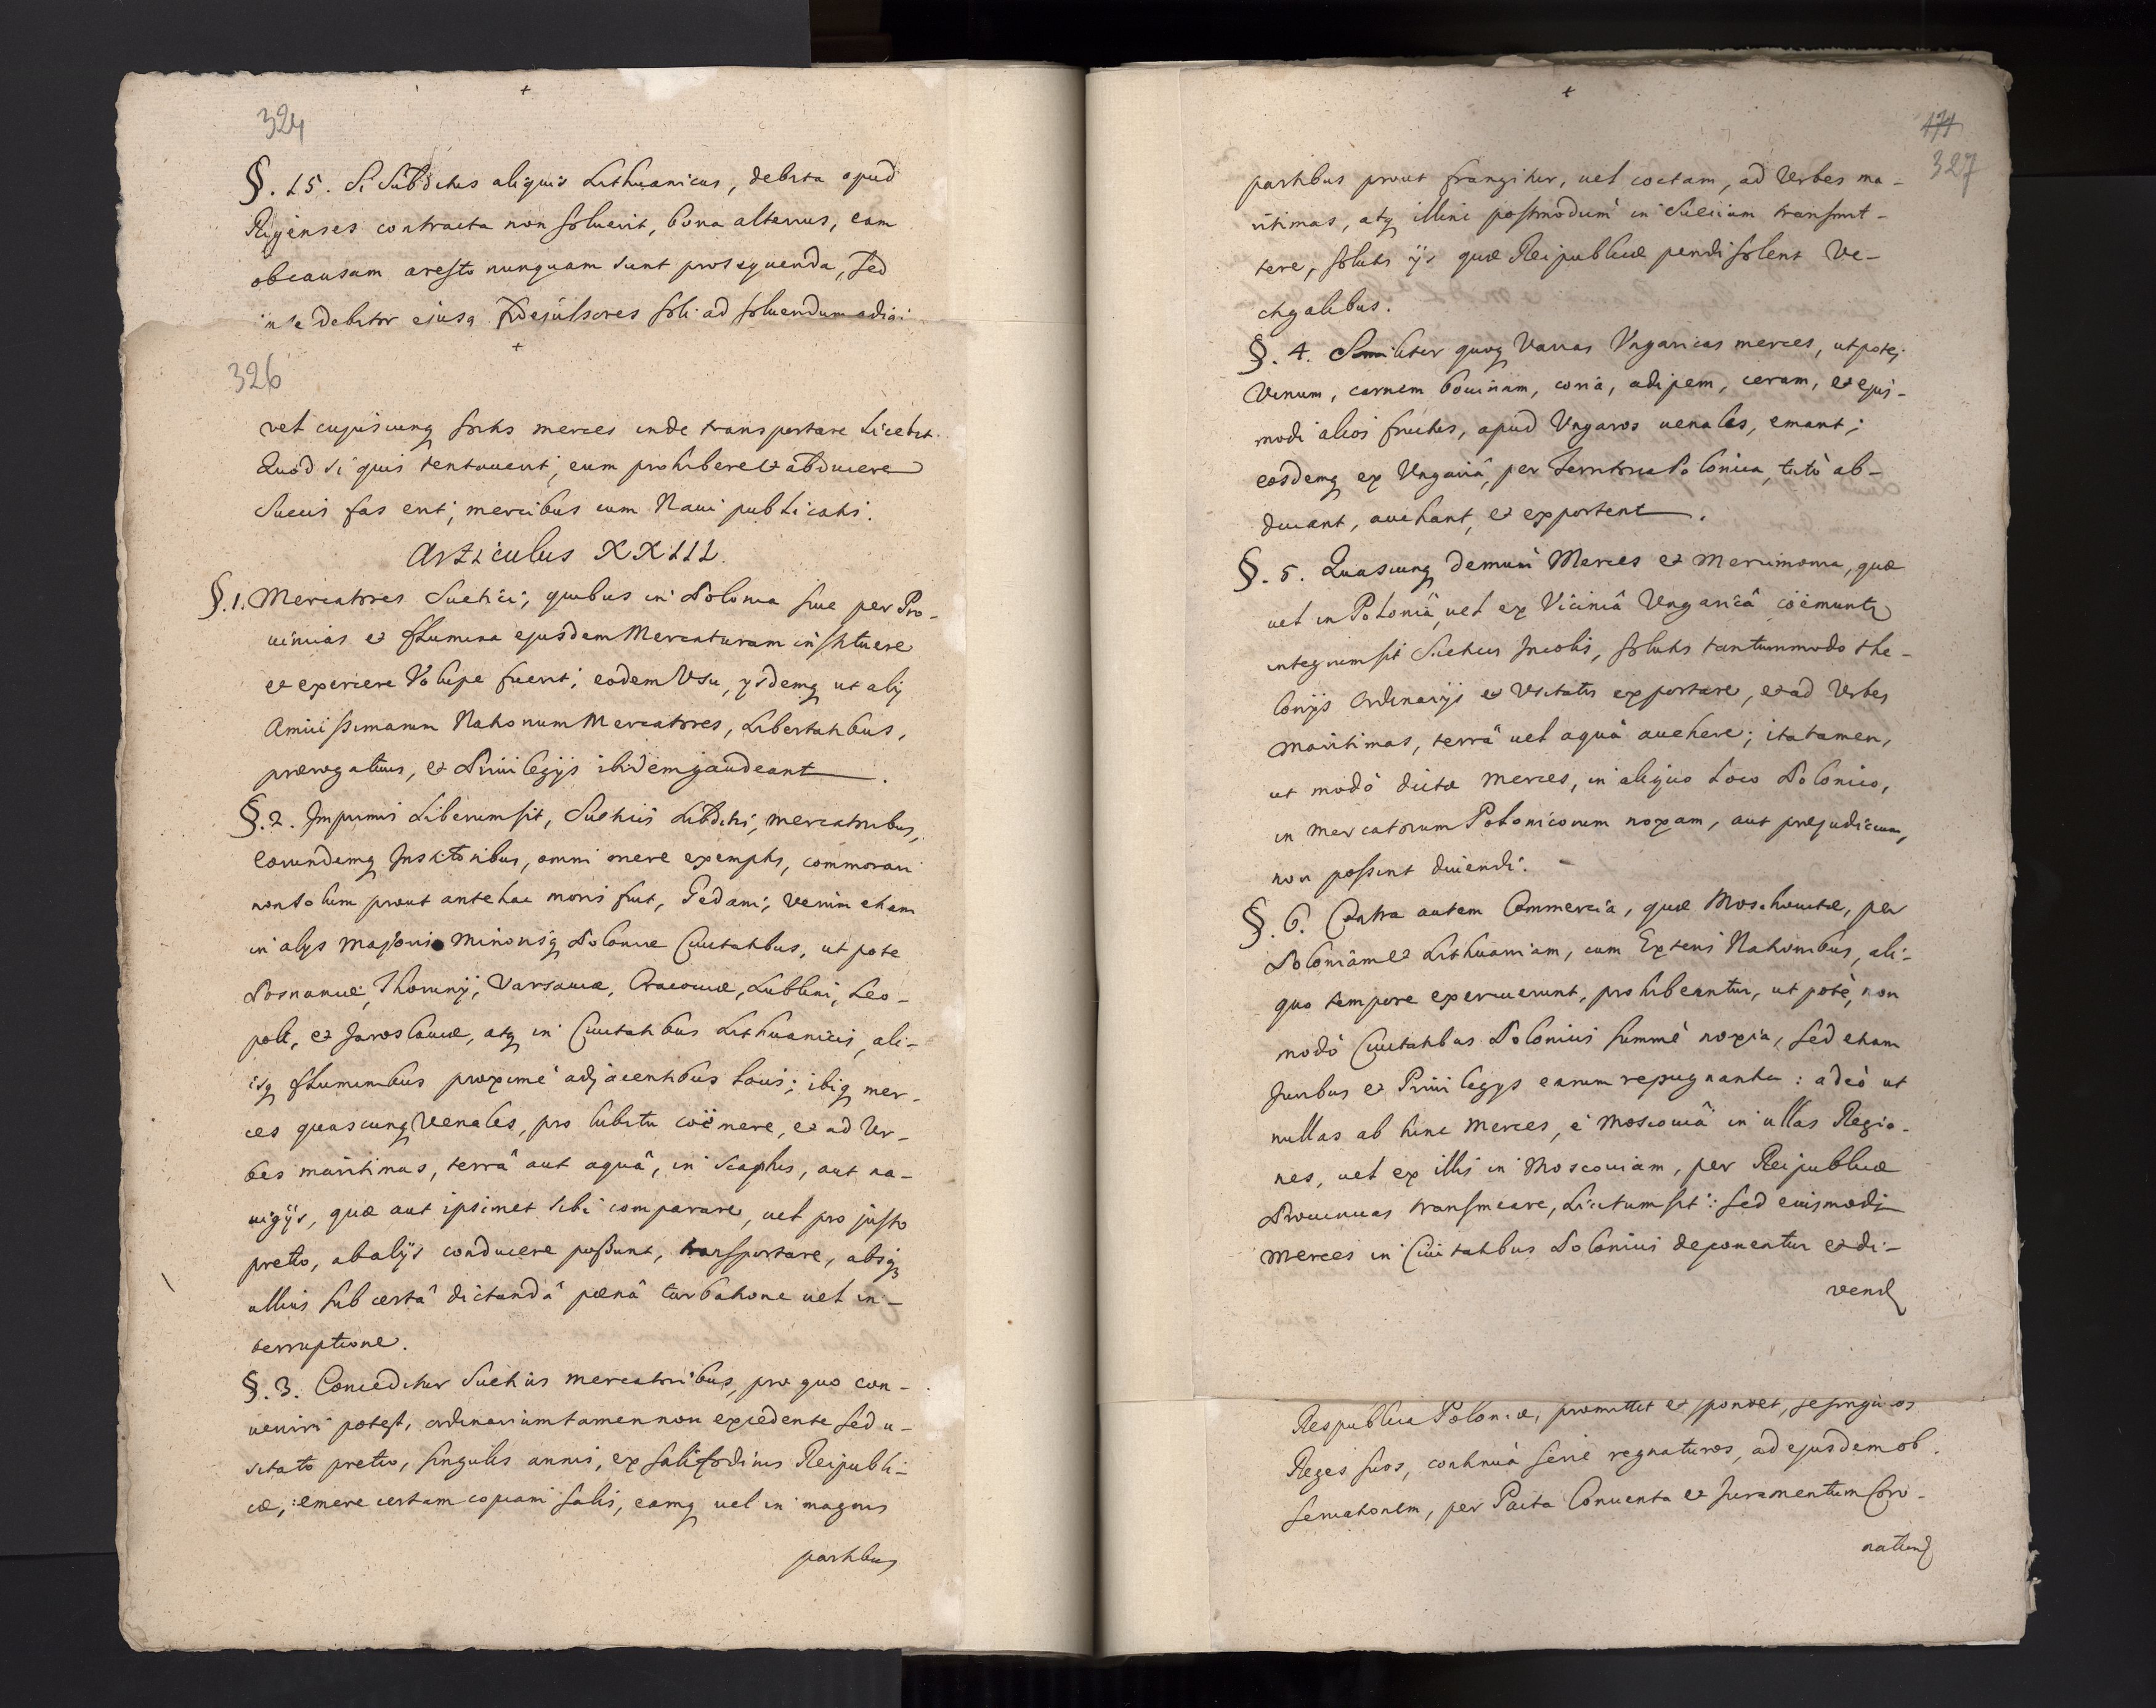 324
§. 15. Si Subditus aliquis Lithuanicus, debita apud
Rigenses contracta non soluerit, bona alterius, eam
ob causam aresto nunquam sunt prosequenda, Sed
in se debitor ejusq Fidejussores soli ad soluendum adigi
326
vel cujuscunq sortis merces inde transportare Licebit.
Quod si quis tentauerit, eum prohibere et abducere
Suecis fas erit, mercibus cum Naui publicatis.
Articulus XXIII.
§. 1. Mercatores Suetici, quibus in Polonia siue per Pro-
uincias et flumina ejusdem Mercaturam instituere
et exercere Volupe fuerit, eodem Usu, ysdemq ut alij
Amicissimarum Nationum Mercatores, Libertatibus,
prærogatiuis, et Priuilegijs ibidem gaudeant.
§. 2. Imprimis Liberum sit, Sueticis subditis, mercatoribus,
Eorundemq Institoribus, omni onere exemptis, commorari
non solum prout antehac moris fuit, Gedani, Verum etiam
in alys majoris minorisq Poloniæ Ciuitatibus, ut pote
Posnaniæ, Thorunij, Varsauiæ, Cracouiæ, Lublini, Leo-
poli, et Jaroslauiæ, atq in Ciuitatibus Lithuanicis, ali-
isq fluminibus proximè adjacentibus locis; ibiq mer-
ces quascunq Venales, pro lubitu coëmere, et ad Ur-
bes maritimas, terrâ aut aquâ, in scaphis, aut na-
uigijs, quæ aut ipsimet sibi comparare, uel pro justo
pretio, ab alijs conducere possunt, transportare, absq
ullius sub certâ dictandâ pœnâ turbatione uel in-
terruptione.
§. 3. Conceditur Sueticis mercatoribus, pro quo con-
ueniri potest, ordinarium tamen non excedente sed u-
sitato pretio, singulis annis, ex salifodinis Reipubli-
cæ, emere certam copiam salis, eamq uel in magnis
partibus
174
327
partibus prout frangitur, uel coctam, ad Urbes ma-
ritimas, atq illinc postmodum in Sueciam transmit-
tere, solutis ijs quæ Reipublicæ pendi solent Ve-
ctigalibus.
§. 4. Similiter quoq Varias Ungaricas merces, utpote
Vinum, carnem bouinam, coria, adipem, ceram, et ejus-
modi alios fructus, apud Ungaros uenales, emant;
eosdemq ex Ungariâ, per Territoria Polonica, tutò ab-
ducant, auehant, et exportent.
§. 5. Quascunq demum Merces et Mercimonia, quæ
uel in Poloniâ, uel ex Viciniâ Ungaricâ coëmunt
integrum sit Sueticis Incolis, solutis tantummodo the-
lonijs Ordinarijs et Usitatis exportare, et ad Urbes
maritimas, terrâ uel aquâ auehere; ita tamen,
ut modò dictæ merces, in aliquo Loco Polonico,
in mercatorum Polonicorum noxam, aut præjudicium,
non possint diuendi.
§. 6. Contra autem Commercia, quæ Moschouitæ, per
Poloniam et Lithuaniam, cum Exteris Nationibus, ali-
quo tempore exercuerunt, prohibeantur, ut potè, non
modò Ciuitatibus Polonicis summè noxia, sed etiam
Juribus et Priuilegijs earum repugnantia: adeò ut
nullas ab hinc merces, è Moscouiâ in ullas Regio-
nes, uel ex illis in Moscouiam, per Reipublicæ
Prouincias transmeare, Licitum sit: sed eiusmodi
merces in Ciuitatibus Polonicis deponentur et di-
vend
Respublica Poloniæ, promittit et spondet, se singulos
Reges suos, continuâ serie regnaturos, ad ejusdem ob-
seruationem, per Pacta Conuenta et Juramentum Coro-
nation